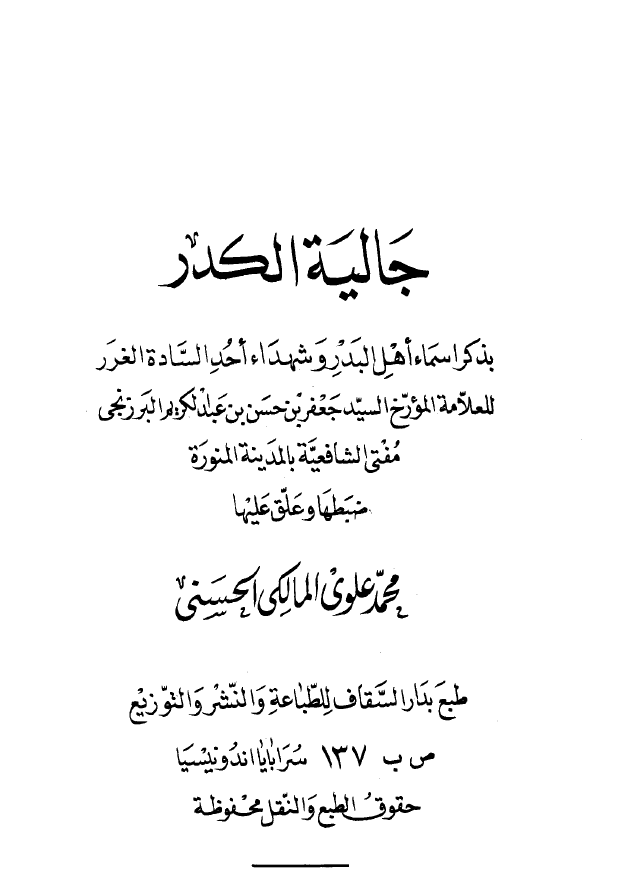 جَالِيَة الكدر
بذكر اسماء أهْلِ البَدْرِ وَشهداء أحُدِ السَّادة الغرَر
للعلاّمة المؤرّخ السيّد جَعْفر بْن حسَن بن عَبد لكريم البَرزنجى
مُفْتى الشافعيَّة بالمدينة المنورَة
ضبَطهَا وعَلّق عَليْها
محمَّد عَلوىْ المالكى الحسَنى
طبعَ بدَار السَّقاف لِلطّبَاعةِ وَالنّشْر وَالتوّزيْع
ص ب ١٣٧ سُرَابَايَا اندُونيْسيَا
حقوقُ الطبع وَالنّقل محْفوظة